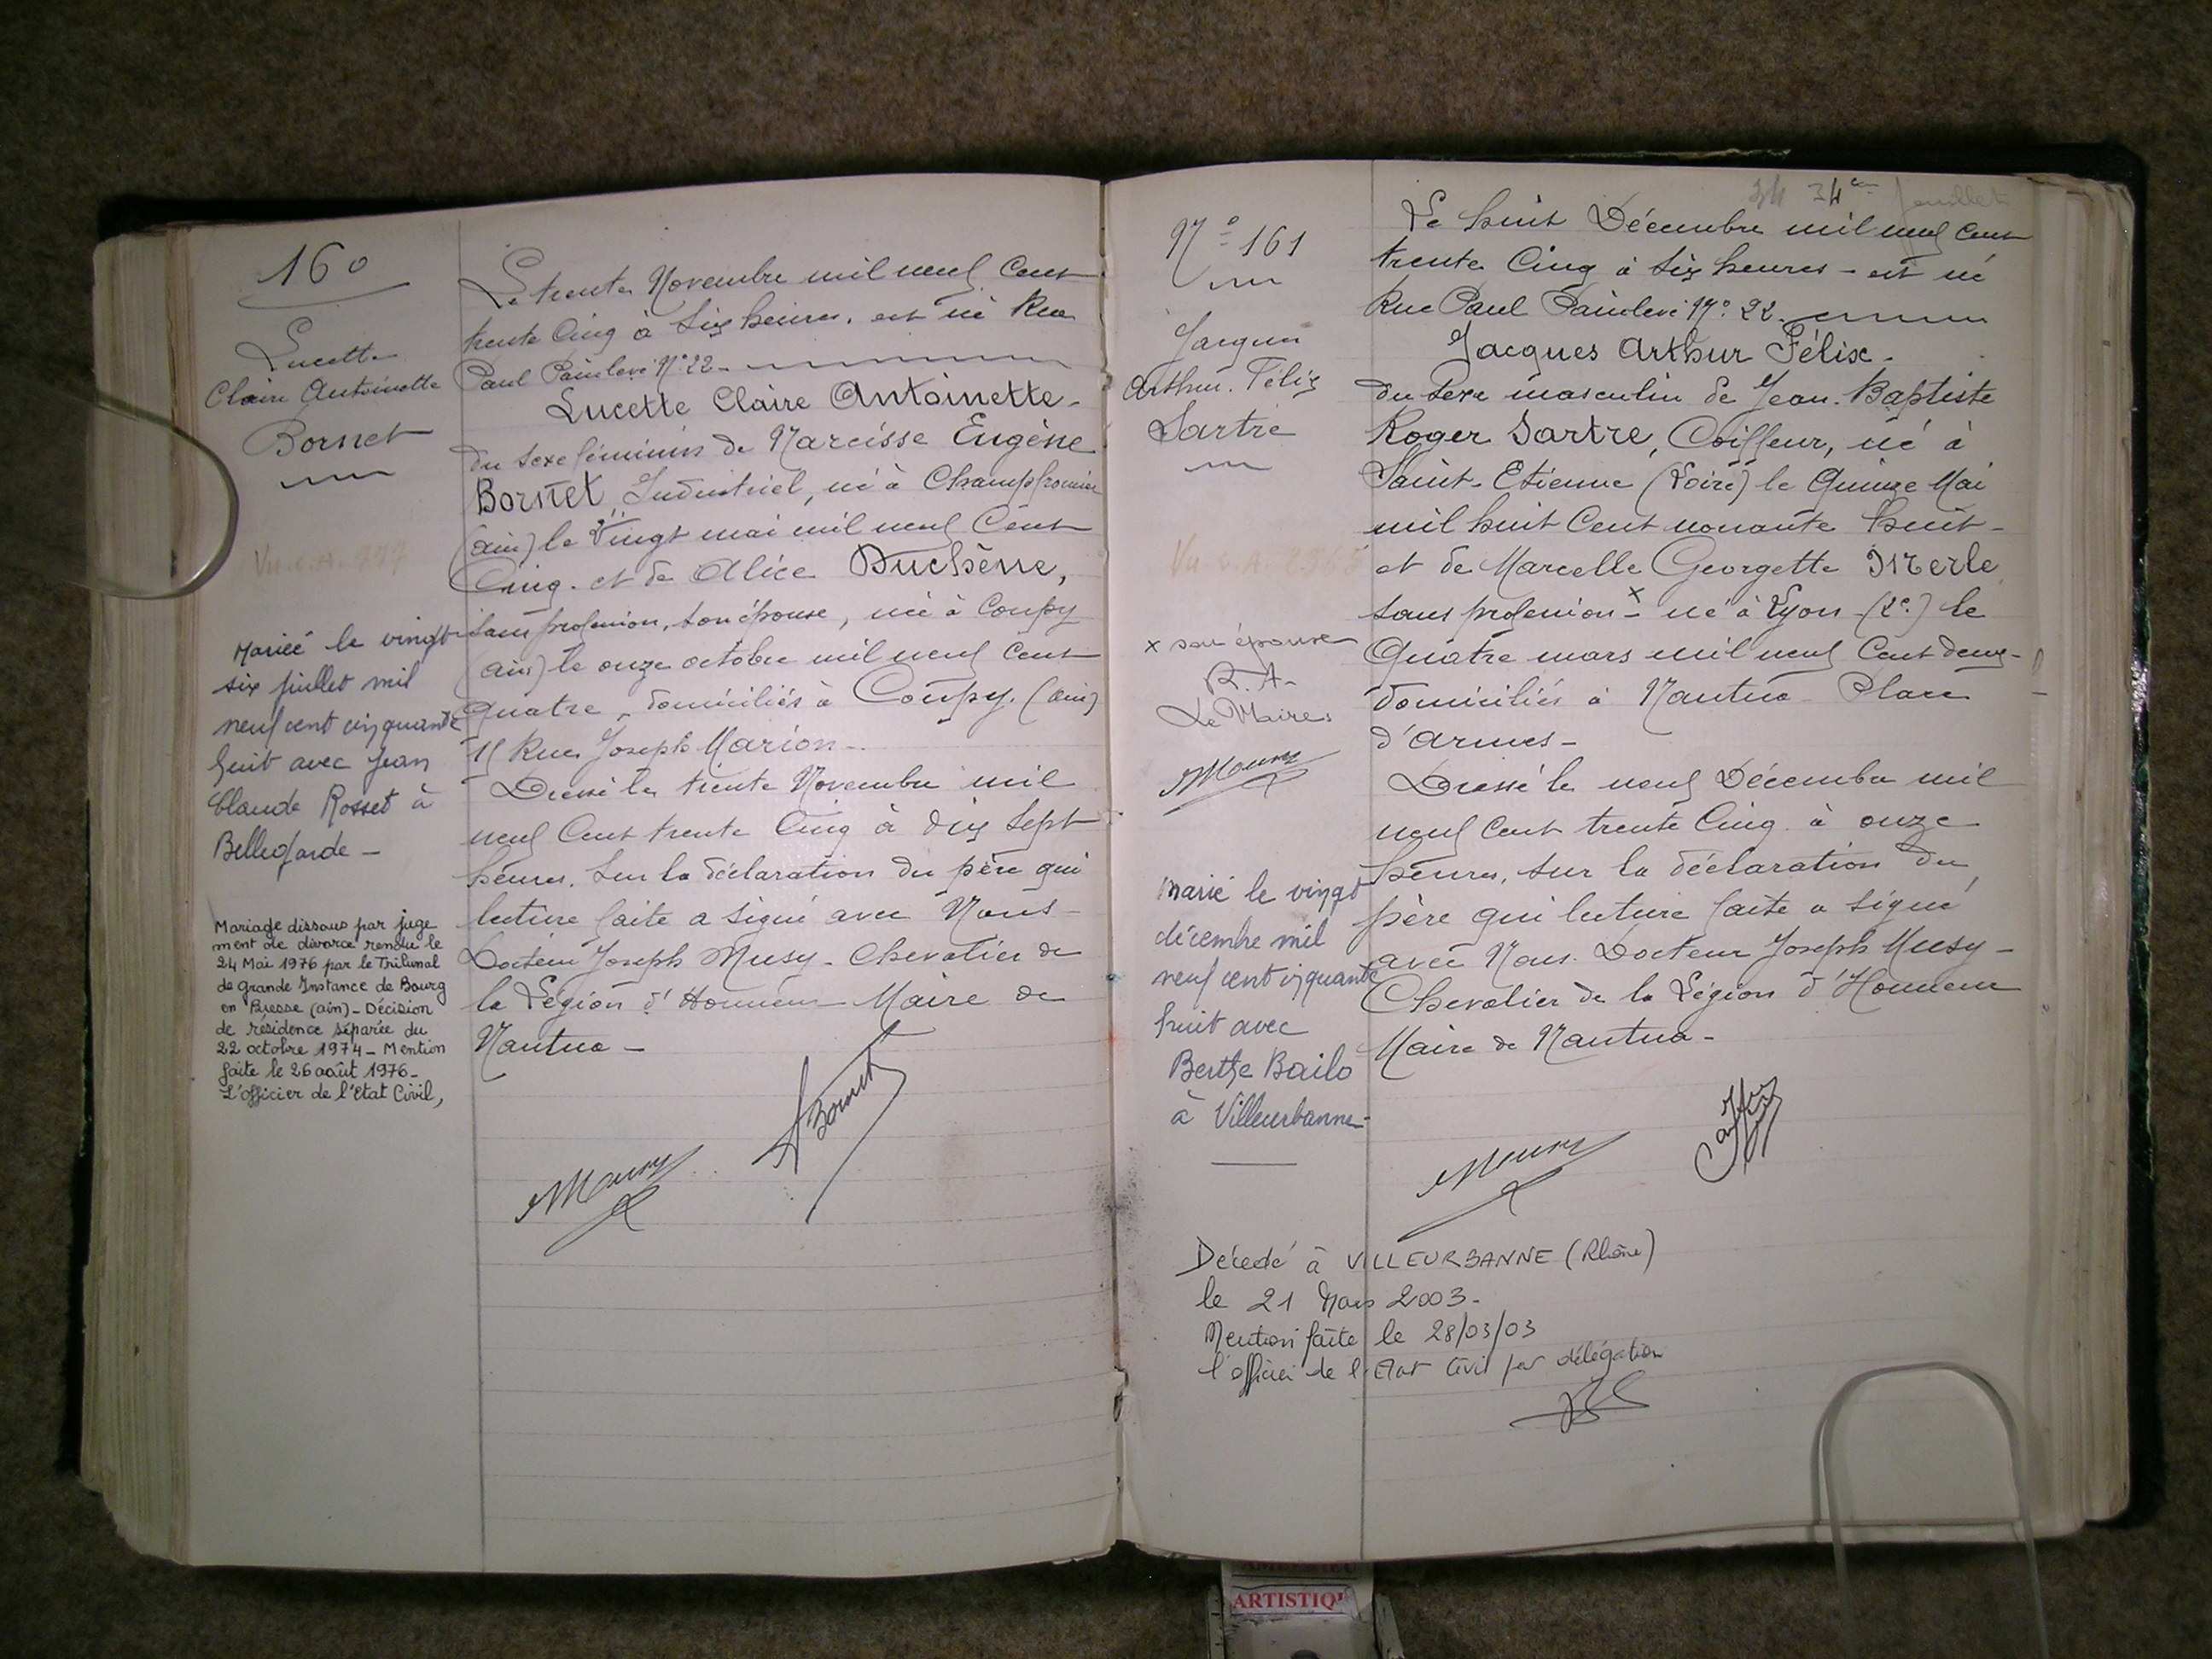 160
Lucette
Claire Antoinette
Bornet
Mariée le vingt
six juillet mil
neuf cent cinquante
huit avec Jean
Claude Rosset à
Bellegarde -
Mariage dissous par juge
ment de divorce rendu le
24 Mai 1976 par le Tribunal
de grande Instance de Bourg
en Bresse (ain) - Décision
de résidence séparée du
22 octobre 1974 - Mention
faite le 26 août 1976 -
L'officier de l'Etat Civil,
Le trente Novembre mil neuf Cent
trente Cinq à Six heures, est né Rue
Paul Painlevé N° 22 -
Lucette Claire Antoinette -
du sexe féminin de Narcisse Eugène
Bornet, Industriel, né à Champfromier
(ain) le Vingt mai mil neuf Cent
Cinq - et de Alice Duchêne,
sans profession, son épouse, née à Coupy
(ain) le onze octobre mil neuf cent
quatre, domiciliés à Coupy (ain)
Rue Joseph Marion -
Dressé le trente Novembre mil
neuf Cent trente Cinq à dix Sept
heures, Sur la déclaration du père qui
lecture faite a signé avec Nous -
Docteur Joseph Musy - Chevalier de
la Légion d'Honneur Maire de
Nantua -
ABornet
Musy
34 34e feuillet
N° 161
Jacques
Arthur. Félix
Sartre
x son épouse
R. A -
Le Maire,
Musy
Marié le vingt
décembre mil
neuf cent cinquante
huit avec
Berthe Bailo
à Villeurbanne -
Le huit Décembre mil neuf Cent
trente Cinq à Six heures - est né
Rue Paul Painlevé N° 22 -
Jacques Arthur Félix -
du sexe masculin de Jean-Baptiste
Roger Sartre, Coiffeur, né à
Saint-Etienne (Loire) le Quinze Mai
mil huit Cent nonante huit -
et de Marcelle Georgette
sans profession x - né à Lyon - (2e) le
Quatre mars mil neuf Cent deux -
domiciliés à Nantua - Place
d'armes -
Dressé le neuf Décembre mil
neuf Cent trente Cinq à onze
heures, sur la déclaration du
père qui lecture faite a signé
avec Nous. Docteur Joseph Musy -
Chevalier de la Légion d'Honneur
Maire de Nantua -
Musy
Décédé à VILLEURBANNE (Rhône)
le 21 Mars 2003 -
Mention faite le 28/03/03
l'officier de l'Etat Civil par délégation
ARTISTIQU